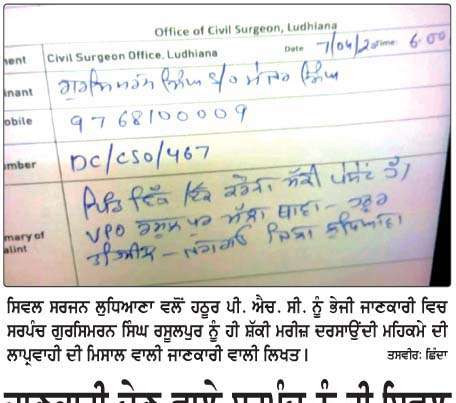 Office of Civil Surgeon, Ludhiana
ment Civil Surgeon Office, Ludhiana Date 7/04/20 Time 6.00
inant ਗੁਰਸਿਮਰਨ ਸਿੰਘ S/O ਸਿੰਘ
obile 9768100009
mber DC/CSO/467
ਪਿੰਡ ਵਿੱਚ ਇੱਕ ਕਰੋਨਾ ਸ਼ੱਕੀ ਪੇਸ਼ੰਟ ਹੈ।
mary of VPO ਰਸੂਲਪੁਰ ਮੱਲਾ ਥਾਣਾ - ਹਠੂਰ
alint ਤਹਿਸੀਲ - ਜਗਰਾਓਂ ਜ਼ਿਲਾ ਲੁਧਿਆਣਾ
ਸਿਵਲ ਸਰਜਨ ਲੁਧਿਆਣਾ ਵਲੋਂ ਹਠੂਰ ਪੀ. ਐਚ. ਸੀ. ਨੂੰ ਭੇਜੀ ਜਾਣਕਾਰੀ ਵਿਚ
ਸਰਪੰਚ ਗੁਰਸਿਮਰਨ ਸਿੰਘ ਰਸੂਲਪੁਰ ਨੂੰ ਹੀ ਸ਼ੱਕੀ ਮਰੀਜ਼ ਦਰਸਾਉਂਦੀ ਮਹਿਕਮੇ ਦੀ
ਲਾਪ੍ਰਵਾਹੀ ਦੀ ਮਿਸਾਲ ਵਾਲੀ ਜਾਣਕਾਰੀ ਵਾਲੀ ਲਿਖਤ। ਤਸਵੀਰ: ਛਿੰਦਾ